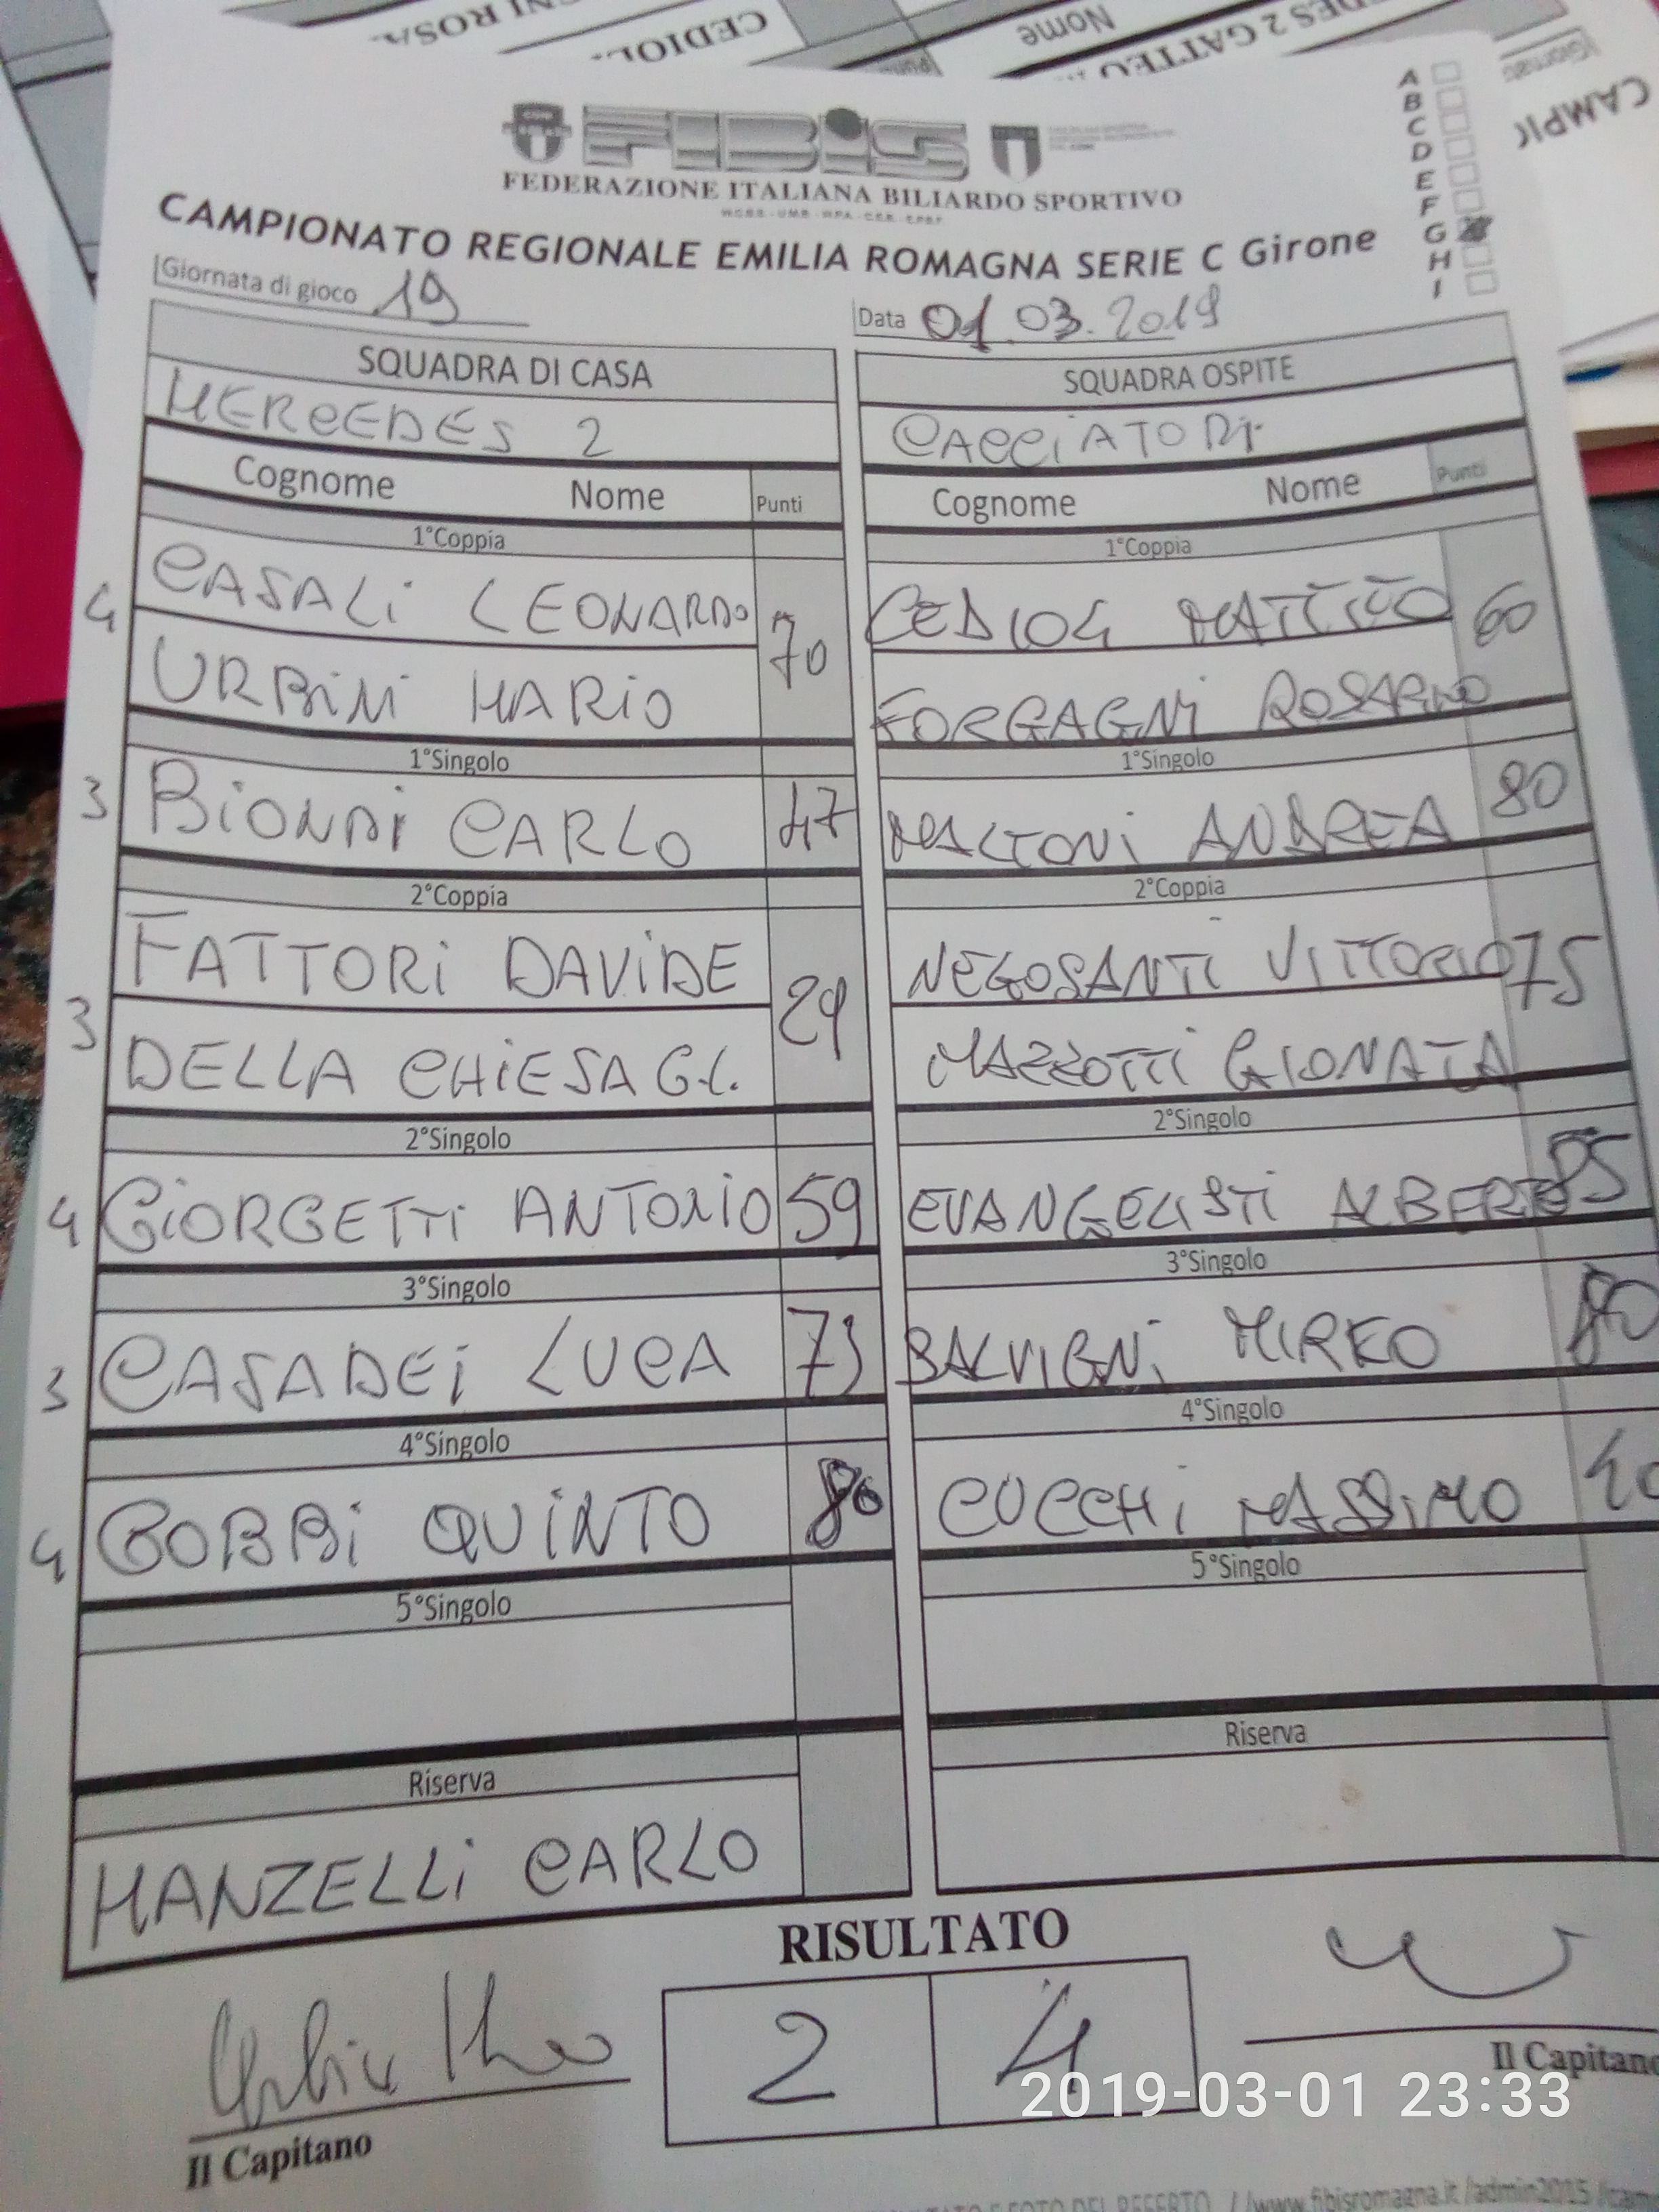 FIBiS
FEDERAZIONE ITALIANA BILIARDO SPORTIVO
CAMPIONATO REGIONALE EMILIA ROMAGNA SERIE C Girone
A
B
C
D
E
F
G
H
I
Giornata di gioco 19
Data 01.03.2019
SQUADRA DI CASA
SQUADRA OSPITE
MERCEDES 2
CACCIATORI
Cognome Nome Punti
Cognome Nome Punti
1°Coppia
1°Coppia
4 CASALI LEONARDO 70
CEDIOLI MATTEO 60
URBINI MARIO
FORGAGNI ROSARNO
1°Singolo
1°Singolo
3 BIONDI CARLO 47
MALTONI ANDREA 80
2°Coppia
2°Coppia
3 FATTORI DAVIDE 29
NEGOSANTI VITTORIO 75
DELLA CHIESA G.L.
MAZZOTTI GIONATA
2°Singolo
2°Singolo
4 GIORGETTI ANTONIO 59
EVANGELISTI ALBERTO 85
3°Singolo
3°Singolo
3 CASADEI LUCA 73
SALVIGNI MIRKO 80
4°Singolo
4°Singolo
4 GOBBI QUINTO 80
CUCCHI MASSIMO 40
5°Singolo
5°Singolo
Riserva
Riserva
MANZELLI CARLO
RISULTATO
2 4
Il Capitano
Il Capitano
2019-03-01 23:33